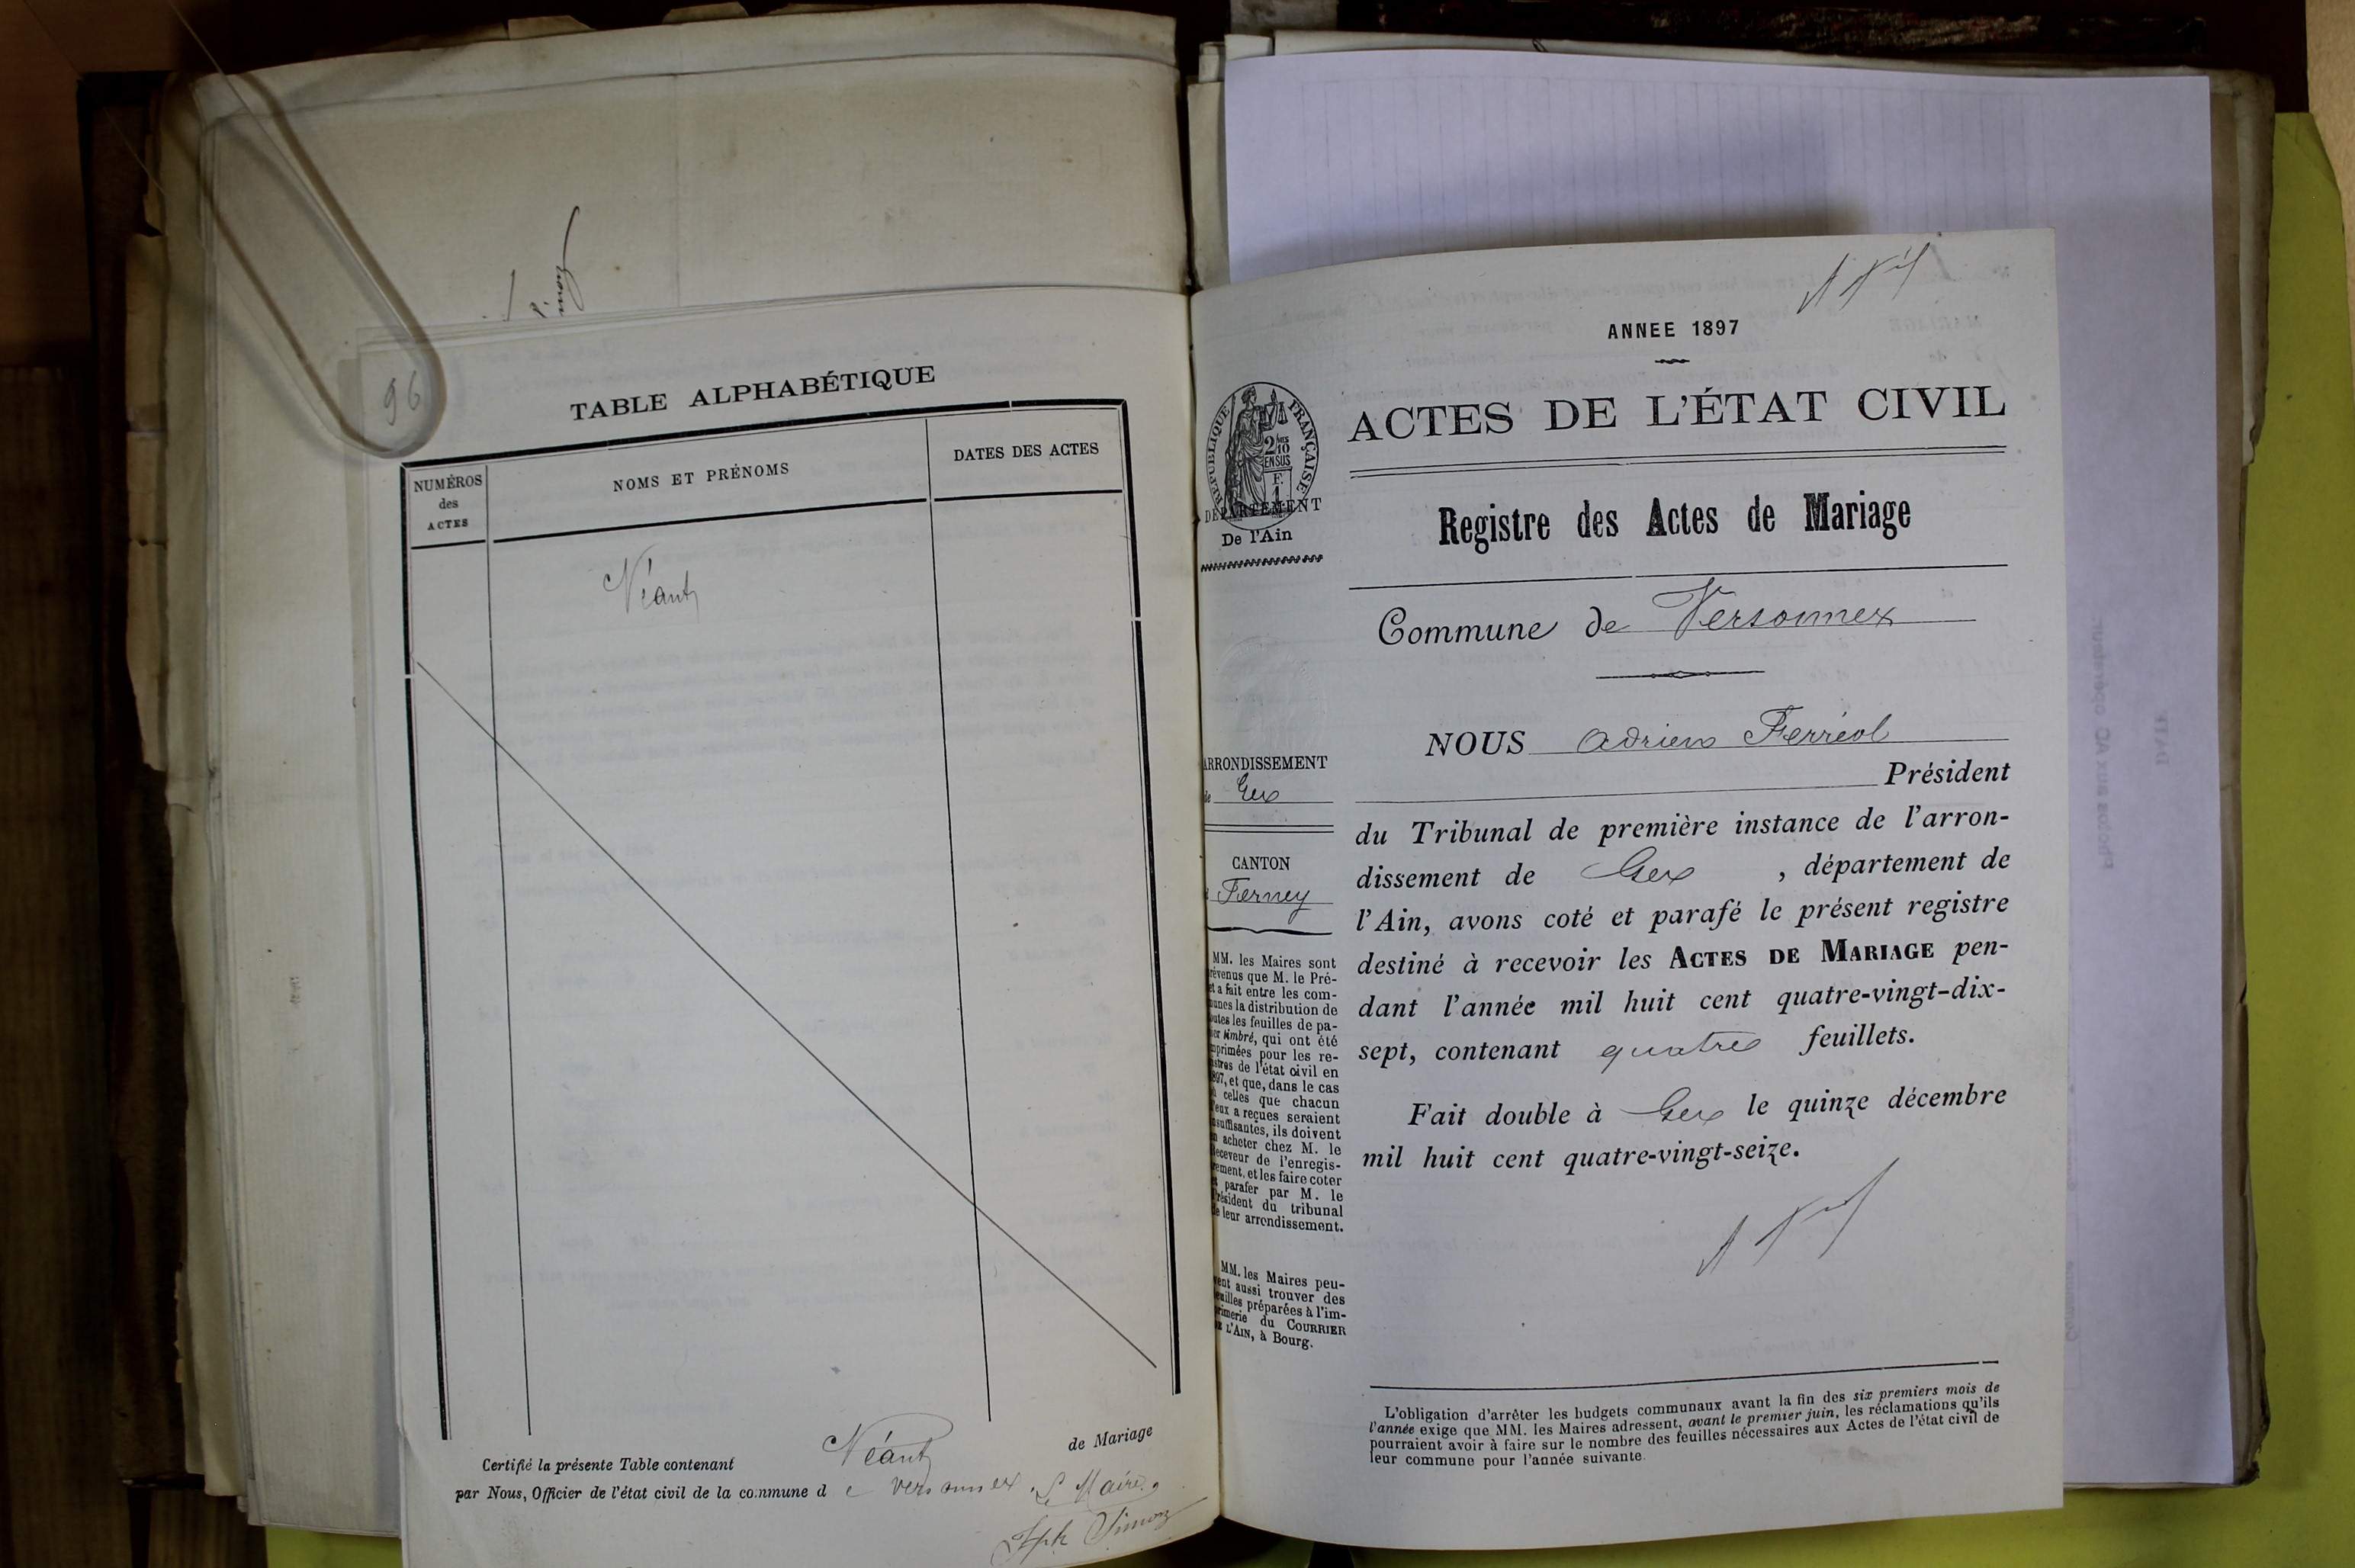 96
TABLE ALPHABÉTIQUE
NUMÉROS
des
ACTES
NOMS ET PRÉNOMS
DATES DES ACTES
Néant
Certifié la présente Table contenant Néant de Mariage
par Nous, Officier de l'état civil de la commune de Versonnex. Le Maire,
Jph Simon
ANNEE 1897
RÉPUBLIQUE FRANÇAISE
2/10
EN SUS
F.
1
DÉPARTEMENT
De l'Ain
ARRONDISSEMENT
de Gex
CANTON
Ferney
MM. les Maires sont
prévenus que M. le Pré-
fet a fait entre les com-
munes la distribution de
toutes les feuilles de pa-
pier timbré, qui ont été
imprimées pour les re-
gistres de l'état civil en
1897, et que, dans le cas
où celles que chacun
d'eux a reçues seraient
insuffisantes, ils doivent
en acheter chez M. le
Receveur de l'enregis-
trement, et les faire coter
et parafer par M. le
Président du tribunal
de leur arrondissement.
MM. les Maires peu-
vent aussi trouver des
feuilles préparées à l'im-
primerie du COURRIER
DE L'AIN, à Bourg.
ACTES DE L'ÉTAT CIVIL
Registre des Actes de Mariage
Commune de Versonnex
NOUS Adrien Ferréol
Président
du Tribunal de première instance de l'arron-
dissement de Gex , département de
l'Ain, avons coté et parafé le présent registre
destiné à recevoir les ACTES DE MARIAGE pen-
dant l'année mil huit cent quatre-vingt-dix-
sept, contenant quatre feuillets.
Fait double à Gex le quinze décembre
mil huit cent quatre-vingt-seize.
L'obligation d'arrêter les budgets communaux avant la fin des six premiers mois de
l'année exige que MM. les Maires adressent, avant le premier juin, les réclamations qu'ils
pourraient avoir à faire sur le nombre des feuilles nécessaires aux Actes de l'état civil de
leur commune pour l'année suivante.